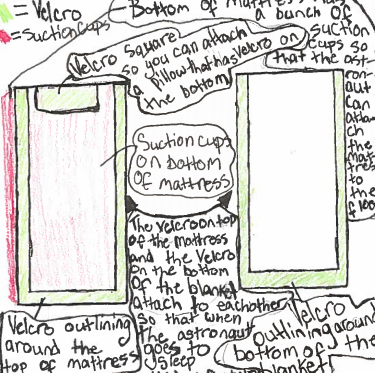 = Velcro
= Suction cups
Bottom of mattress has
a bunch of
suction
cups so
that the ast-
ron-
aut
can
attach
ch
the
mat-
tress
to
the
floor
Velcro square
so you can attach
a pillow that has velcro on
the bottom
Suction cups
on bottom
of mattress
The velcro on top
of the mattress
and the velcro
on the bottom
of the blanket
attach to eachother
so that when
the astronaut
goes to
sleep
Velcro outlining
around the
top of mattress
Velcro
outlining around
bottom of the
blanket